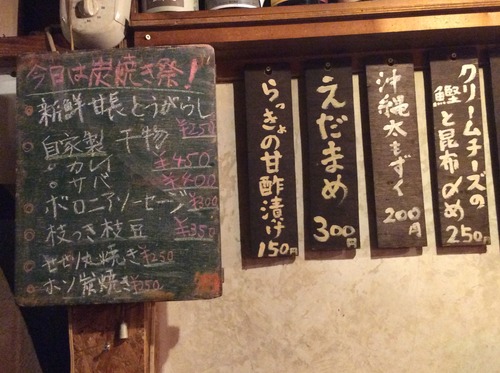 今日は炭焼き祭!
新鮮甘長とうがらし
¥250
自家製 干物
・カレイ ¥450
・サバ ¥400
ボロニアソーセージ ¥300
枝つき枝豆 ¥350
せせり炭焼き ¥250
ホソ炭焼き ¥250
らっきょの甘酢漬け 150円
えだまめ 300円
沖縄太もずく 200円
クリームチーズの
鰹と昆布〆め 250円